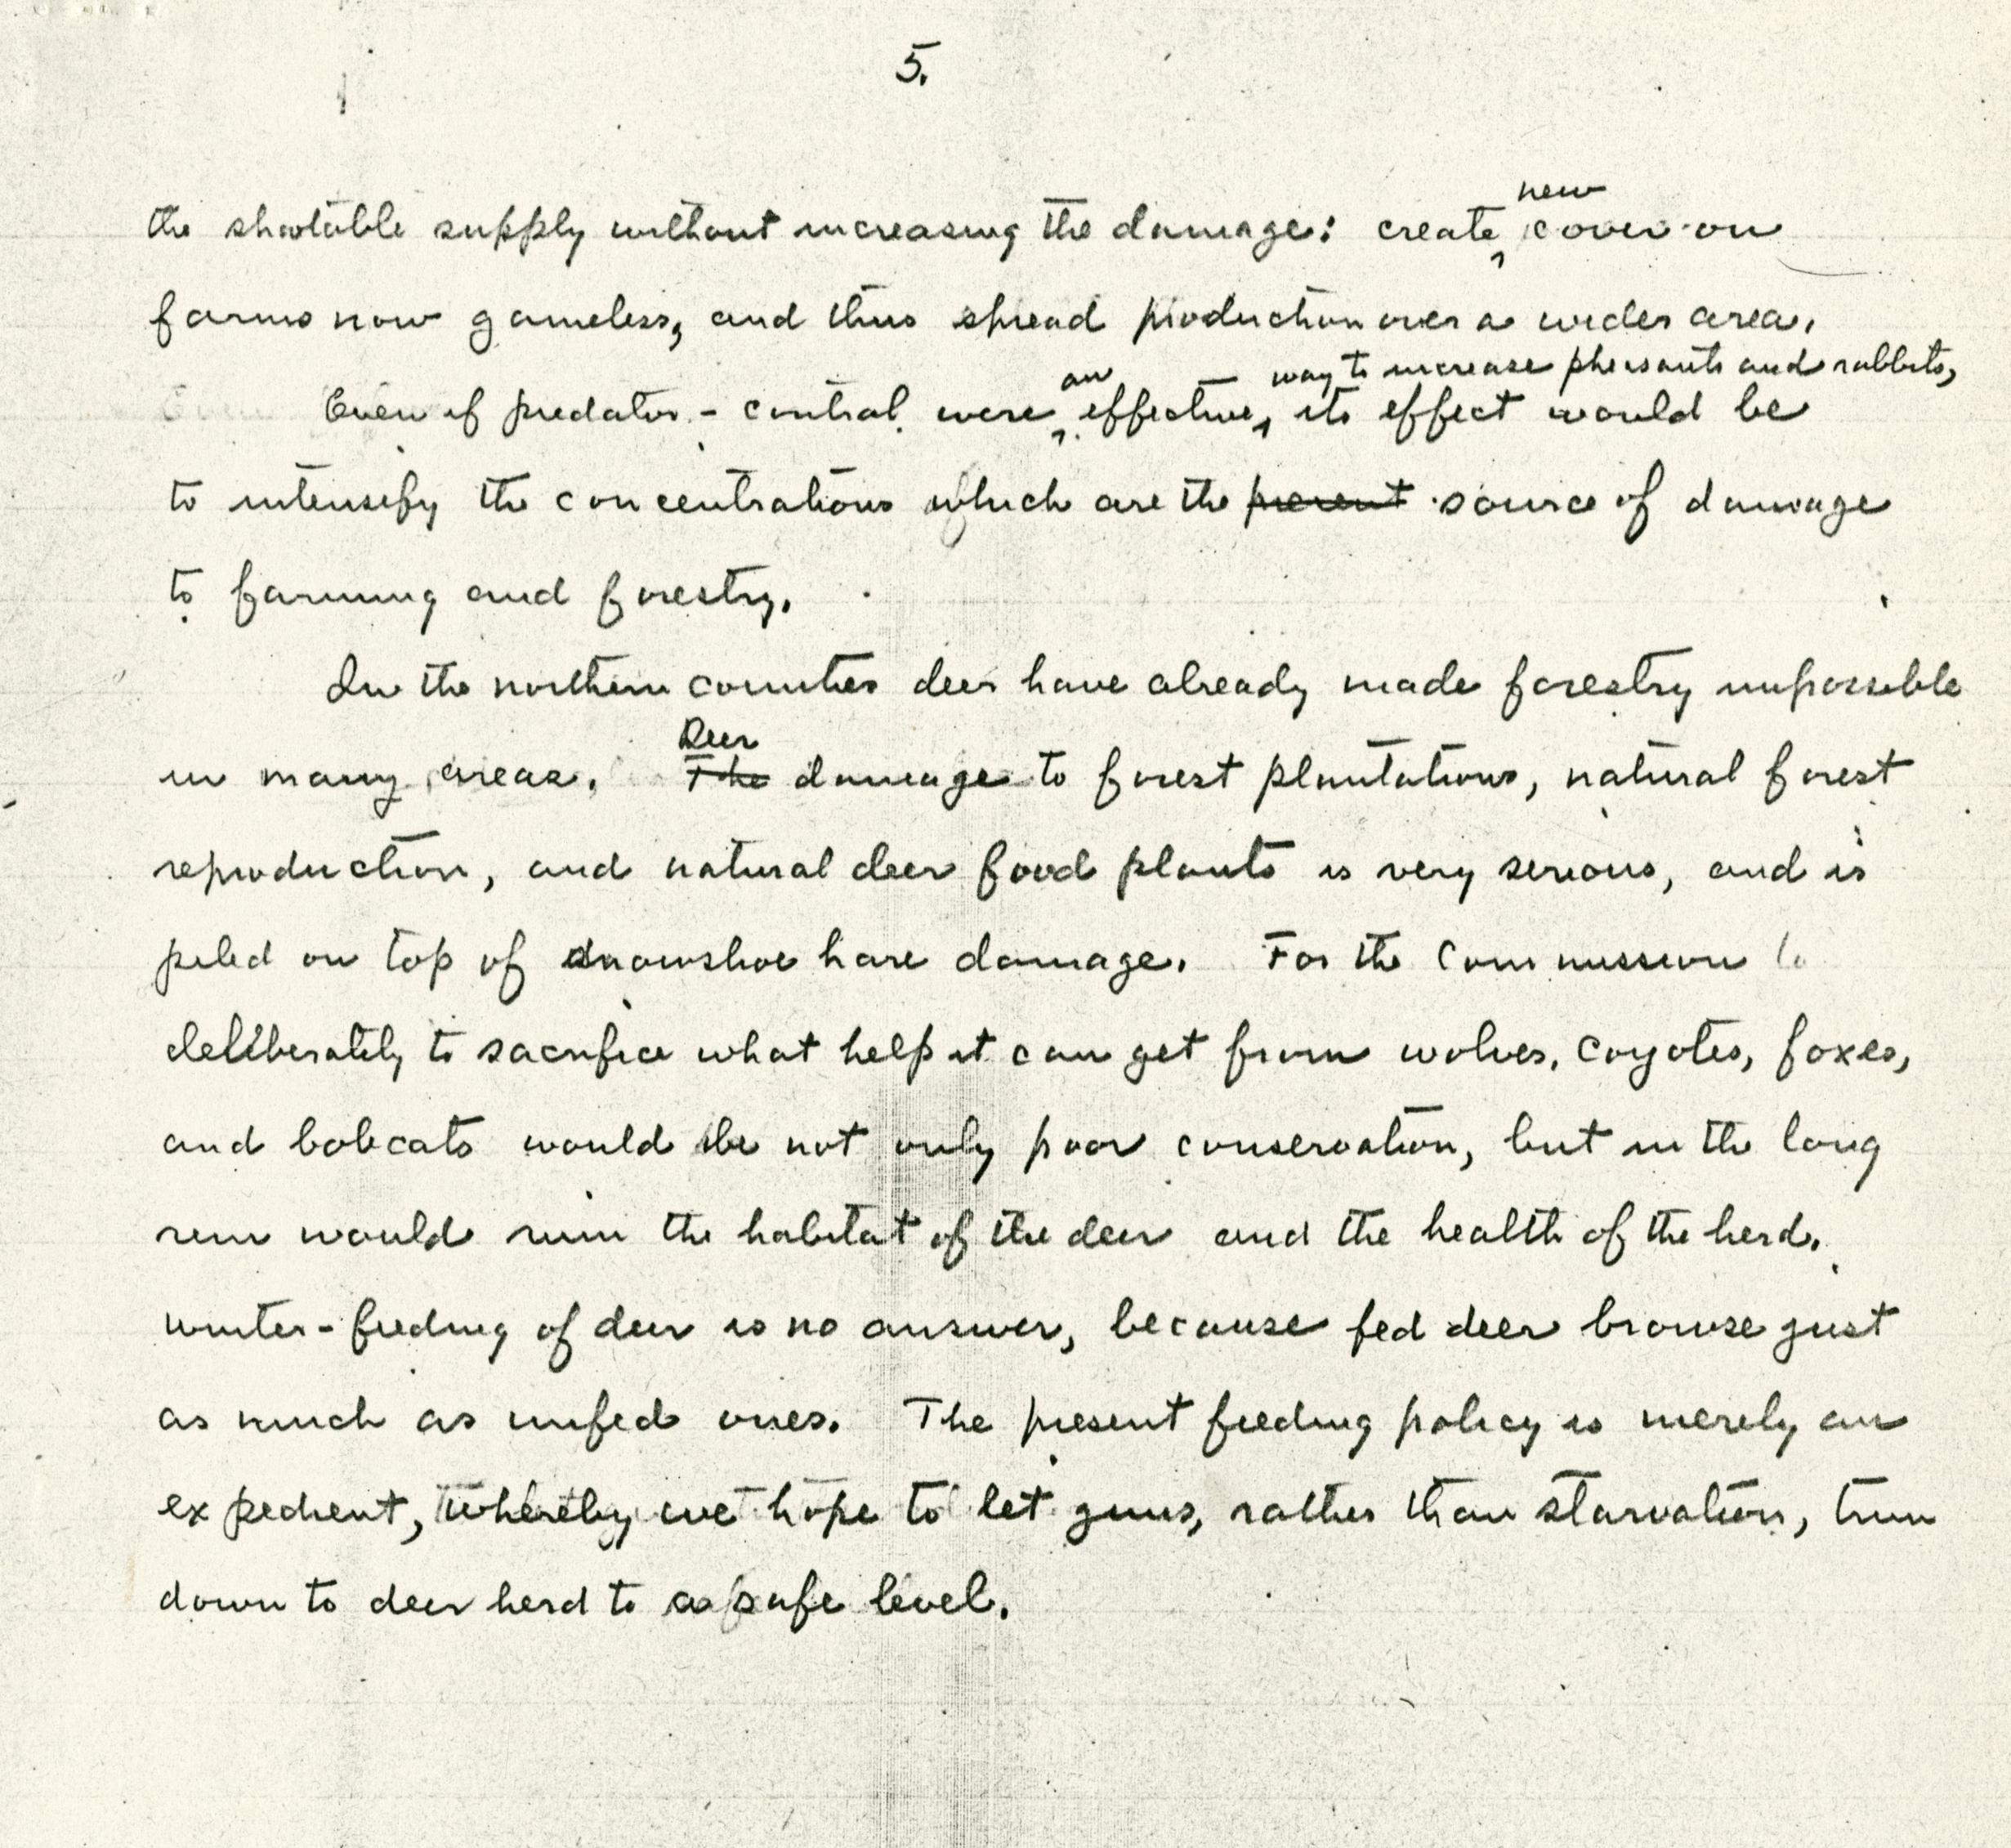 5.
the shootable supply without increasing the damage: create new cover on
farms now gameless, and thus spread production over a wider area.
Even if predator-control were an effective way to increase pheasants and rabbits, its effect would be
to intensify the concentrations which are the present source of damage
to farming and forestry.
In the northern counties deer have already made forestry impossible
in many areas. The Deer damage to forest plantations, natural forest
reproduction, and natural deer food plants is very serious, and is
piled on top of snowshoe hare damage. For the Commission to
deliberately to sacrifice what help it can get from wolves, coyotes, foxes,
and bobcats would be not only poor conservation, but in the long
run would ruin the habitat of the deer and the health of the herd.
Winter-feeding of deer is no answer, because fed deer browse just
as much as unfed ones. The present feeding policy is merely an
expedient, whereby we hope to let guns, rather than starvation, trim
down to deer herd to a safe level.